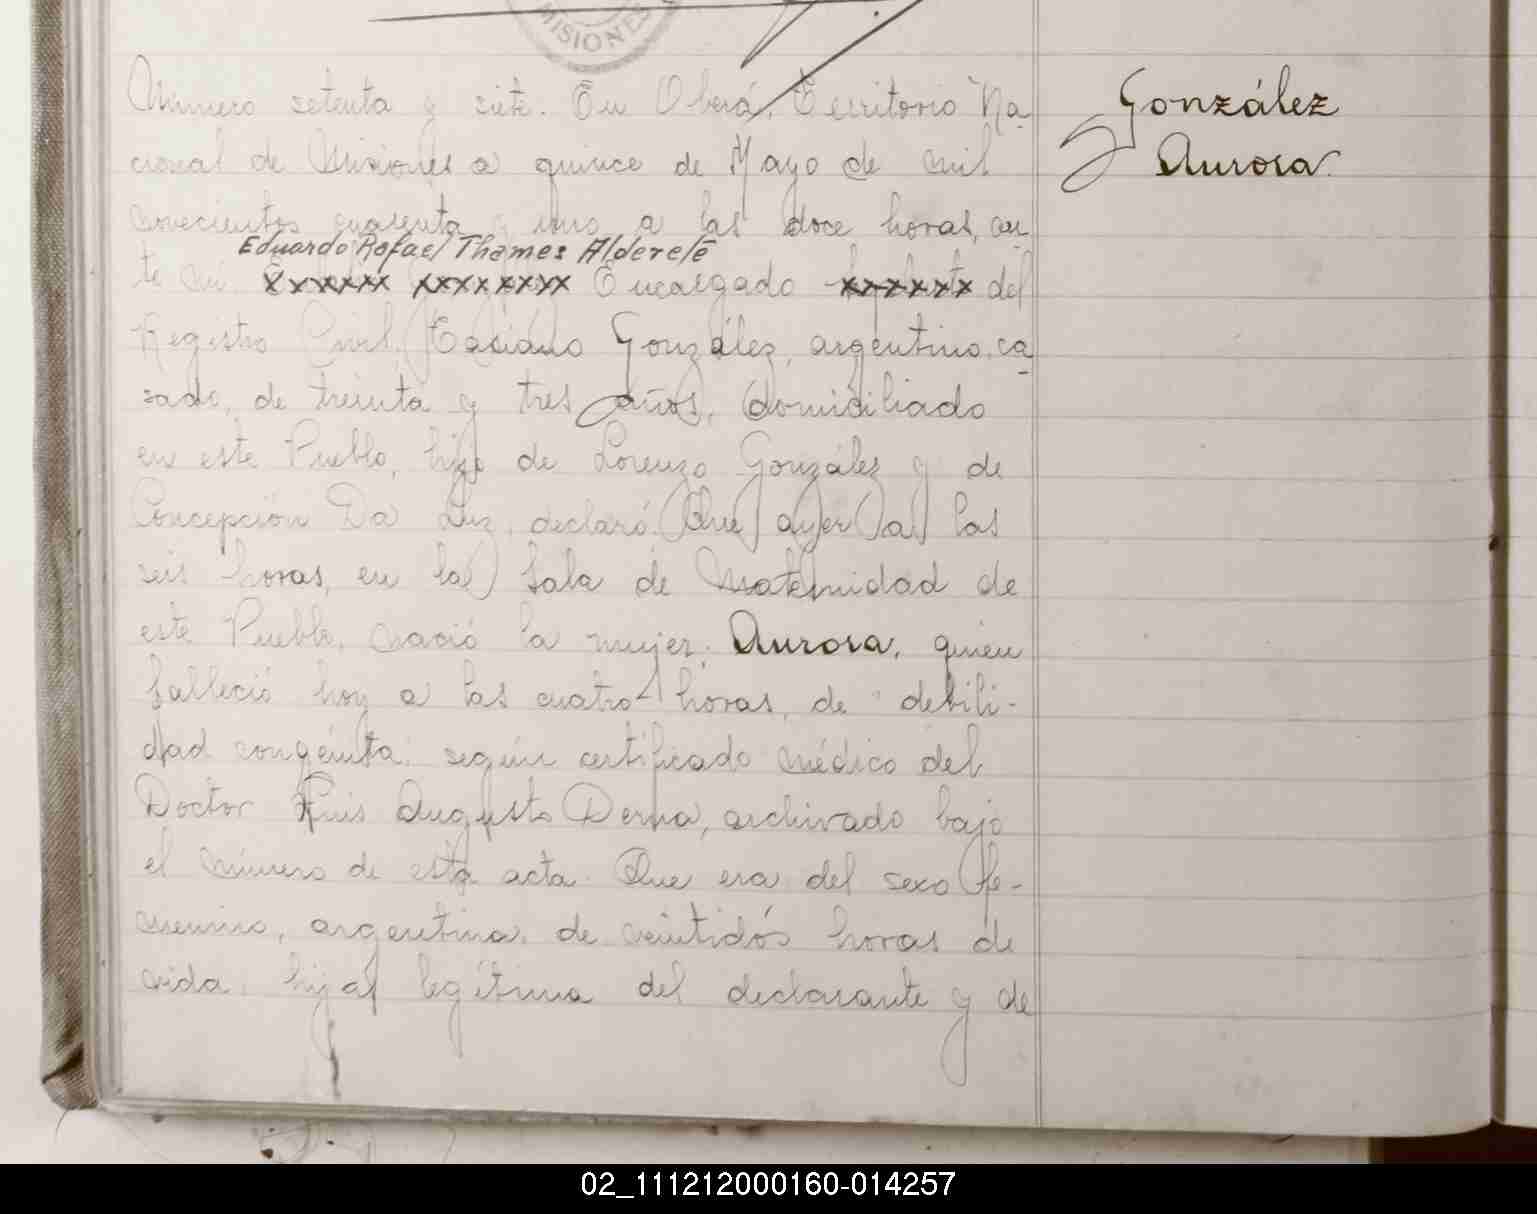 MISIONES
Número setenta y siete. En Oberá, Territorio Na-
cional de Misiones a quince de Mayo de mil
novecientos cuarenta y uno a las doce horas, an-
Eduardo Rafael Thames Alderete
te mí xxxxxx xxxxxxxx Encargado xxxxxxx del
Registro Civil, Taciano González, argentino, ca-
sado, de treinta y tres años, domiciliado
en este Pueblo, hijo de Lorenzo González y de
Concepción Da Luz, declaró: Que ayer a las
seis horas, en la Sala de Maternidad de
este Pueblo, nació la mujer: Aurora, quien
falleció hoy a las cuatro horas, de debili-
dad congénita: según certificado médico del
Doctor Luis Augusto Derna, archivado bajo
el número de esta acta. Que era del sexo fe-
menino, argentina, de veintidós horas de
vida, hija legítima del declarante y de
González
Aurora.
02_111212000160-014257